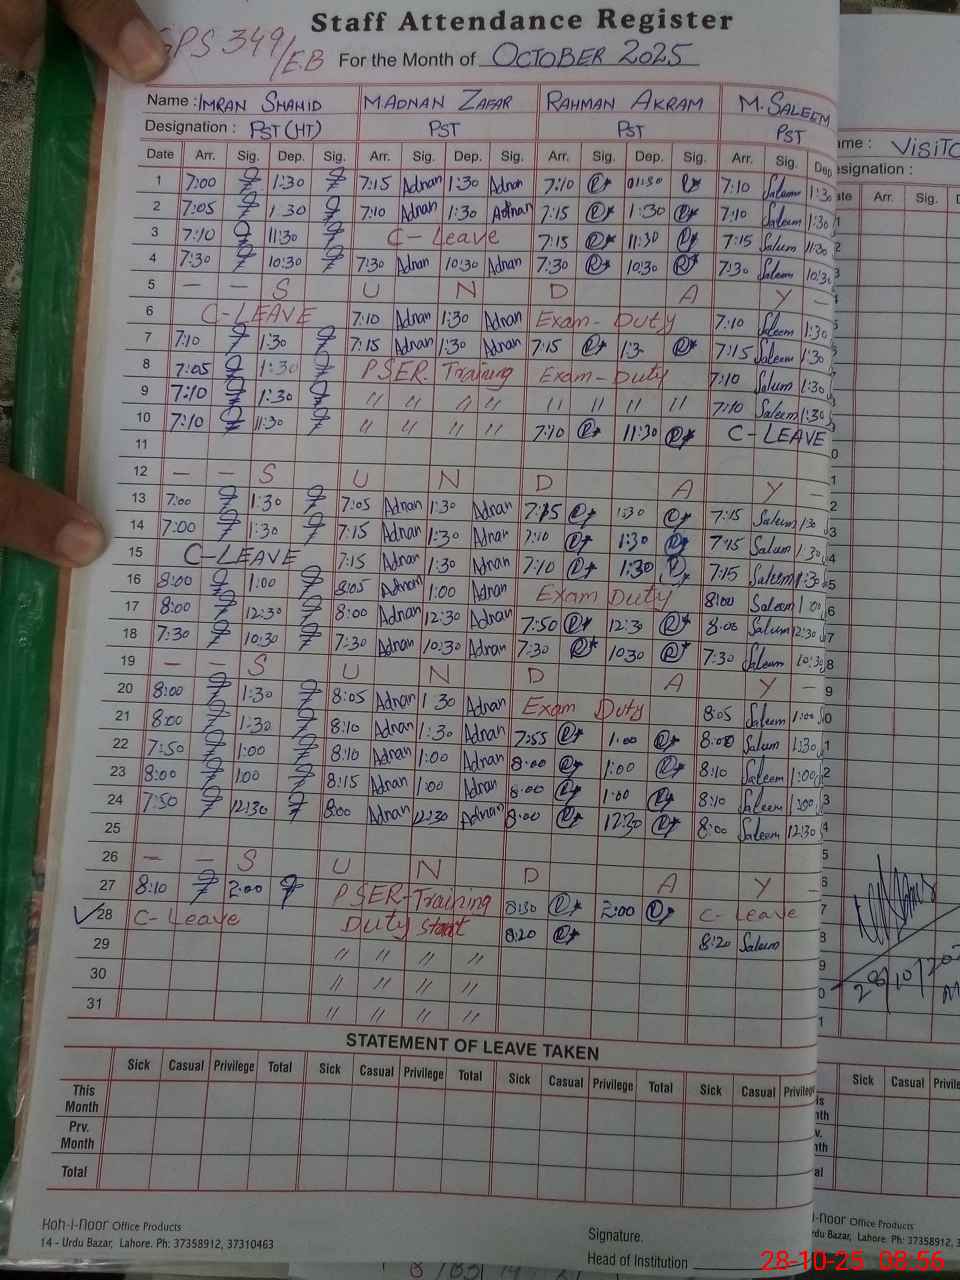 Staff Attendance Register
GPS 349/E.B For the Month of OCTOBER 2025
Name : IMRAN SHAHID M ADNAN ZAFAR RAHMAN AKRAM M. SALEEM
Designation : PST (HT) PST PST PST
Date Arr. Sig. Dep. Sig. Arr. Sig. Dep. Sig. Arr. Sig. Dep. Sig. Arr. Sig. Dep
1 7:00 1:30 7:15 Adnan 1:30 Adnan 7:10 01:30 7:10 Saleem 1:30
2 7:05 1:30 7:10 Adnan 1:30 Adnan 7:15 1:30 7:10 Saleem 1:30
3 7:10 11:30 C- Leave 7:15 11:30 7:15 Saleem 11:30
4 7:30 10:30 7:30 Adnan 10:30 Adnan 7:30 10:30 7:30 Saleem 10:30
5 — — S U N D A Y —
6 C-LEAVE 7:10 Adnan 1:30 Adnan Exam-Duty 7:10 Saleem 1:30
7 7:10 1:30 7:15 Adnan 1:30 Adnan 7:15 1:3 7:15 Saleem 1:30
8 7:05 1:30 PSER. Training Exam-Duty 7:10 Saleem 1:30
9 7:10 1:30 " " " " " " " " 7:10 Saleem 1:30
10 7:10 11:30 " " " " 7:10 11:30 C-LEAVE
11
12 — — S U N D A Y —
13 7:00 1:30 7:05 Adnan 1:30 Adnan 7:15 1:30 7:15 Saleem 1:30
14 7:00 1:30 7:15 Adnan 1:30 Adnan 7:10 1:30 7:15 Saleem 1:30
15 C-LEAVE 7:15 Adnan 1:30 Adnan 7:10 1:30 7:15 Saleem 1:30
16 8:00 1:00 8:05 Adnan 1:00 Adnan Exam Duty 8:00 Saleem 1:00
17 8:00 12:30 8:00 Adnan 12:30 Adnan 7:50 12:30 8:00 Saleem 12:30
18 7:30 10:30 7:30 Adnan 10:30 Adnan 7:30 10:30 7:30 Saleem 10:30
19 — — S U N D A Y —
20 8:00 1:30 8:05 Adnan 1:30 Adnan Exam Duty 8:05 Saleem 1:00
21 8:00 1:30 8:10 Adnan 1:30 Adnan 7:55 1:00 8:00 Saleem 1:30
22 7:50 1:00 8:10 Adnan 1:00 Adnan 8:00 1:00 8:10 Saleem 1:00
23 8:00 1:00 8:15 Adnan 1:00 Adnan 8:00 1:00 8:10 Saleem 1:00
24 7:50 12:30 8:00 Adnan 12:30 Adnan 8:00 12:30 8:00 Saleem 12:30
25
26 — — S U N D A Y —
27 8:10 2:00 PSER-Training 8:30 2:00 C- Leave
✓28 C- Leave Duty Start 8:20 8:20 Saleem
29 " " " "
30 " " " "
31 " " " "
STATEMENT OF LEAVE TAKEN
Sick Casual Privilege Total Sick Casual Privilege Total Sick Casual Privilege Total Sick Casual Privilege
This Month
Prv. Month
Total
Koh-I-Noor Office Products
14 - Urdu Bazar, Lahore. Ph: 37358912, 37310463
Signature.
Head of Institution
ame : VISITO
esignation :
ate Arr. Sig. D
28/10/202
Sick Casual Privile
-Noor Office Products
rdu Bazar, Lahore. Ph: 37358912, 3
28-10-25 08:56